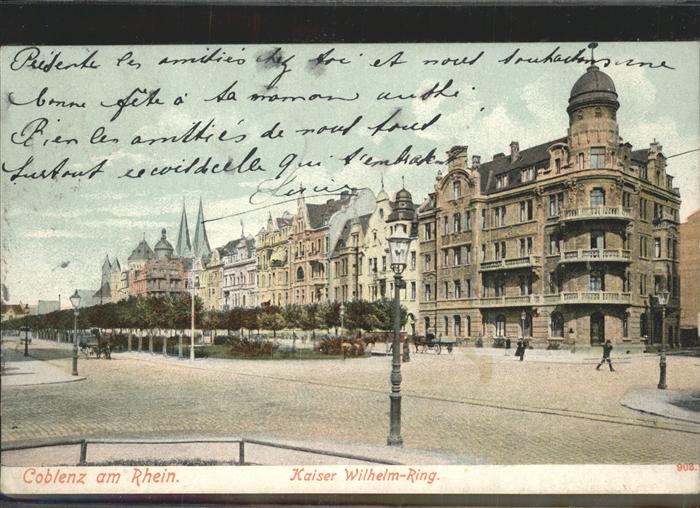 Présente les amitiés chez toi et nous souhaitons une
bonne fête à ta maman aussi.
Rien les amitiés de nous tous
surtout de qui t'embrasse
Lucie
Coblenz am Rhein.
Kaiser Wilhelm-Ring.
903.